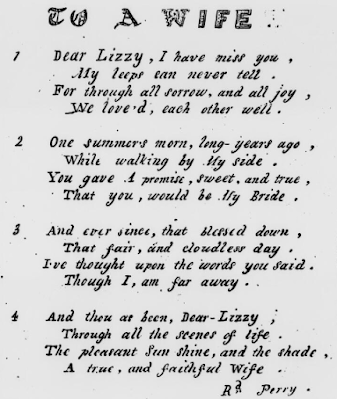 TO A WIFE
1 Dear Lizzy, I have miss you,
My leeps can never tell.
For through all sorrow, and all joy,
We love'd, each other well.
2 One summers morn, long-years ago,
While walking by My side.
You gave A promise, sweet, and true,
That you, would be My Bride.
3 And ever since, that blessed down,
That fair, and cloudless day.
I've thought upon the words you said.
Though I, am far away.
4 And thou as been, Dear-Lizzy;
Through all the scenes of life.
The pleasant Sun shine, and the shade,
A true, and faithful Wife.
Rd Perry.